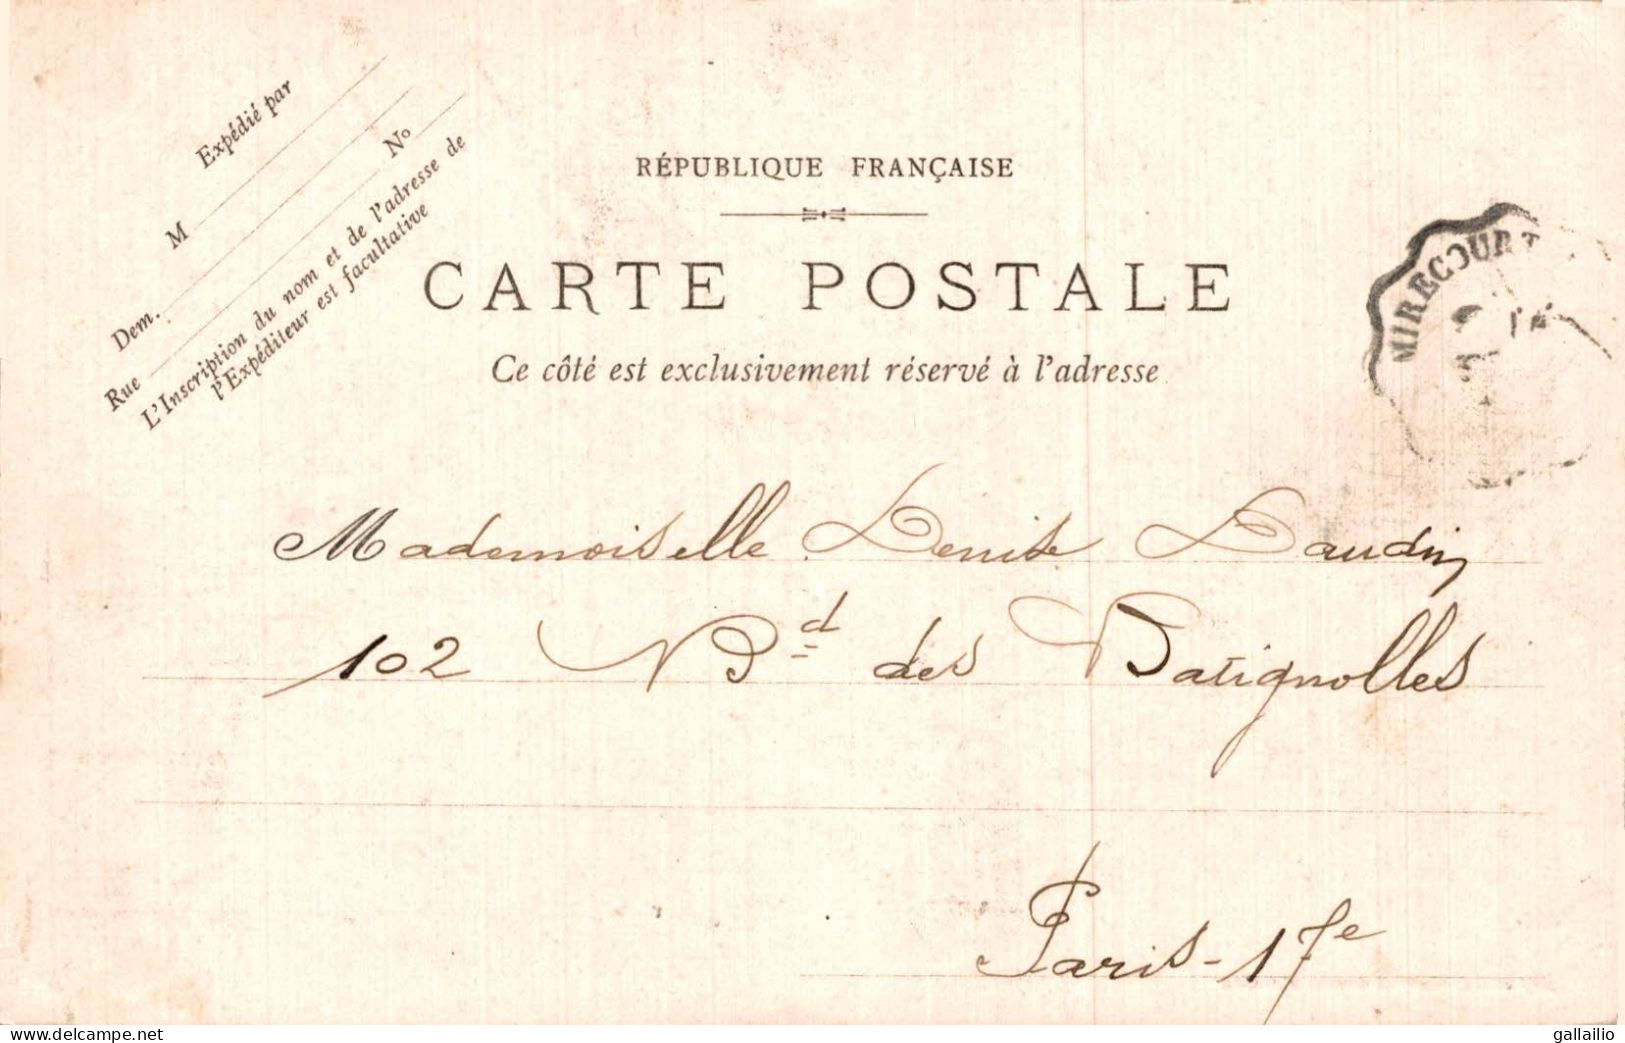 Expédié par
M
Dem. No
Rue
L'Inscription du nom et de l'adresse de
l'Expéditeur est facultative
RÉPUBLIQUE FRANÇAISE
CARTE POSTALE
Ce côté est exclusivement réservé à l'adresse
MIRECOURT
Mademoiselle Denise Daudin
102 Bd des Batignolles
Paris - 17e
www.delcampe.net
gallailio